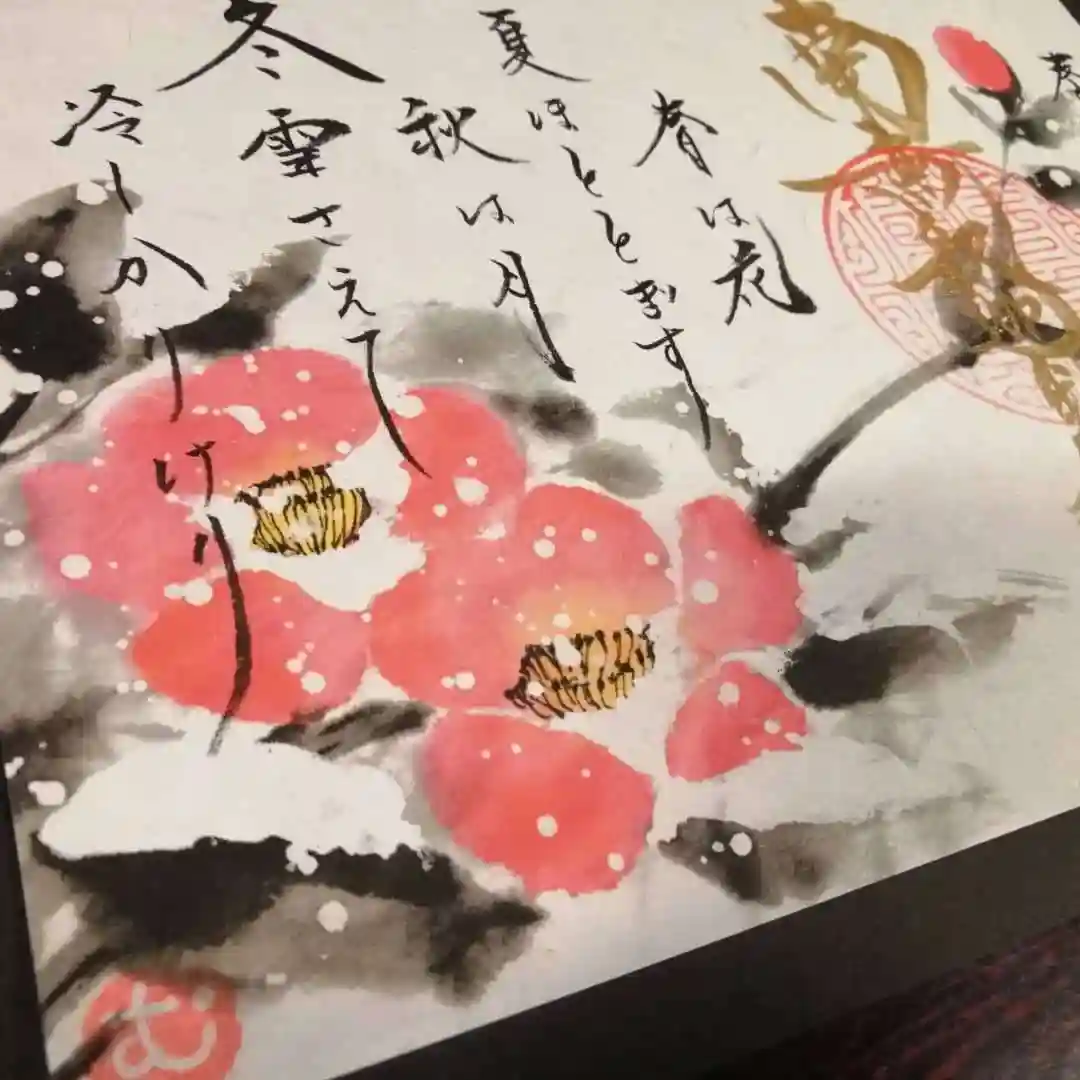 春は花
夏ほととぎす
秋は月
冬雪さえて
冷しかりけり
む